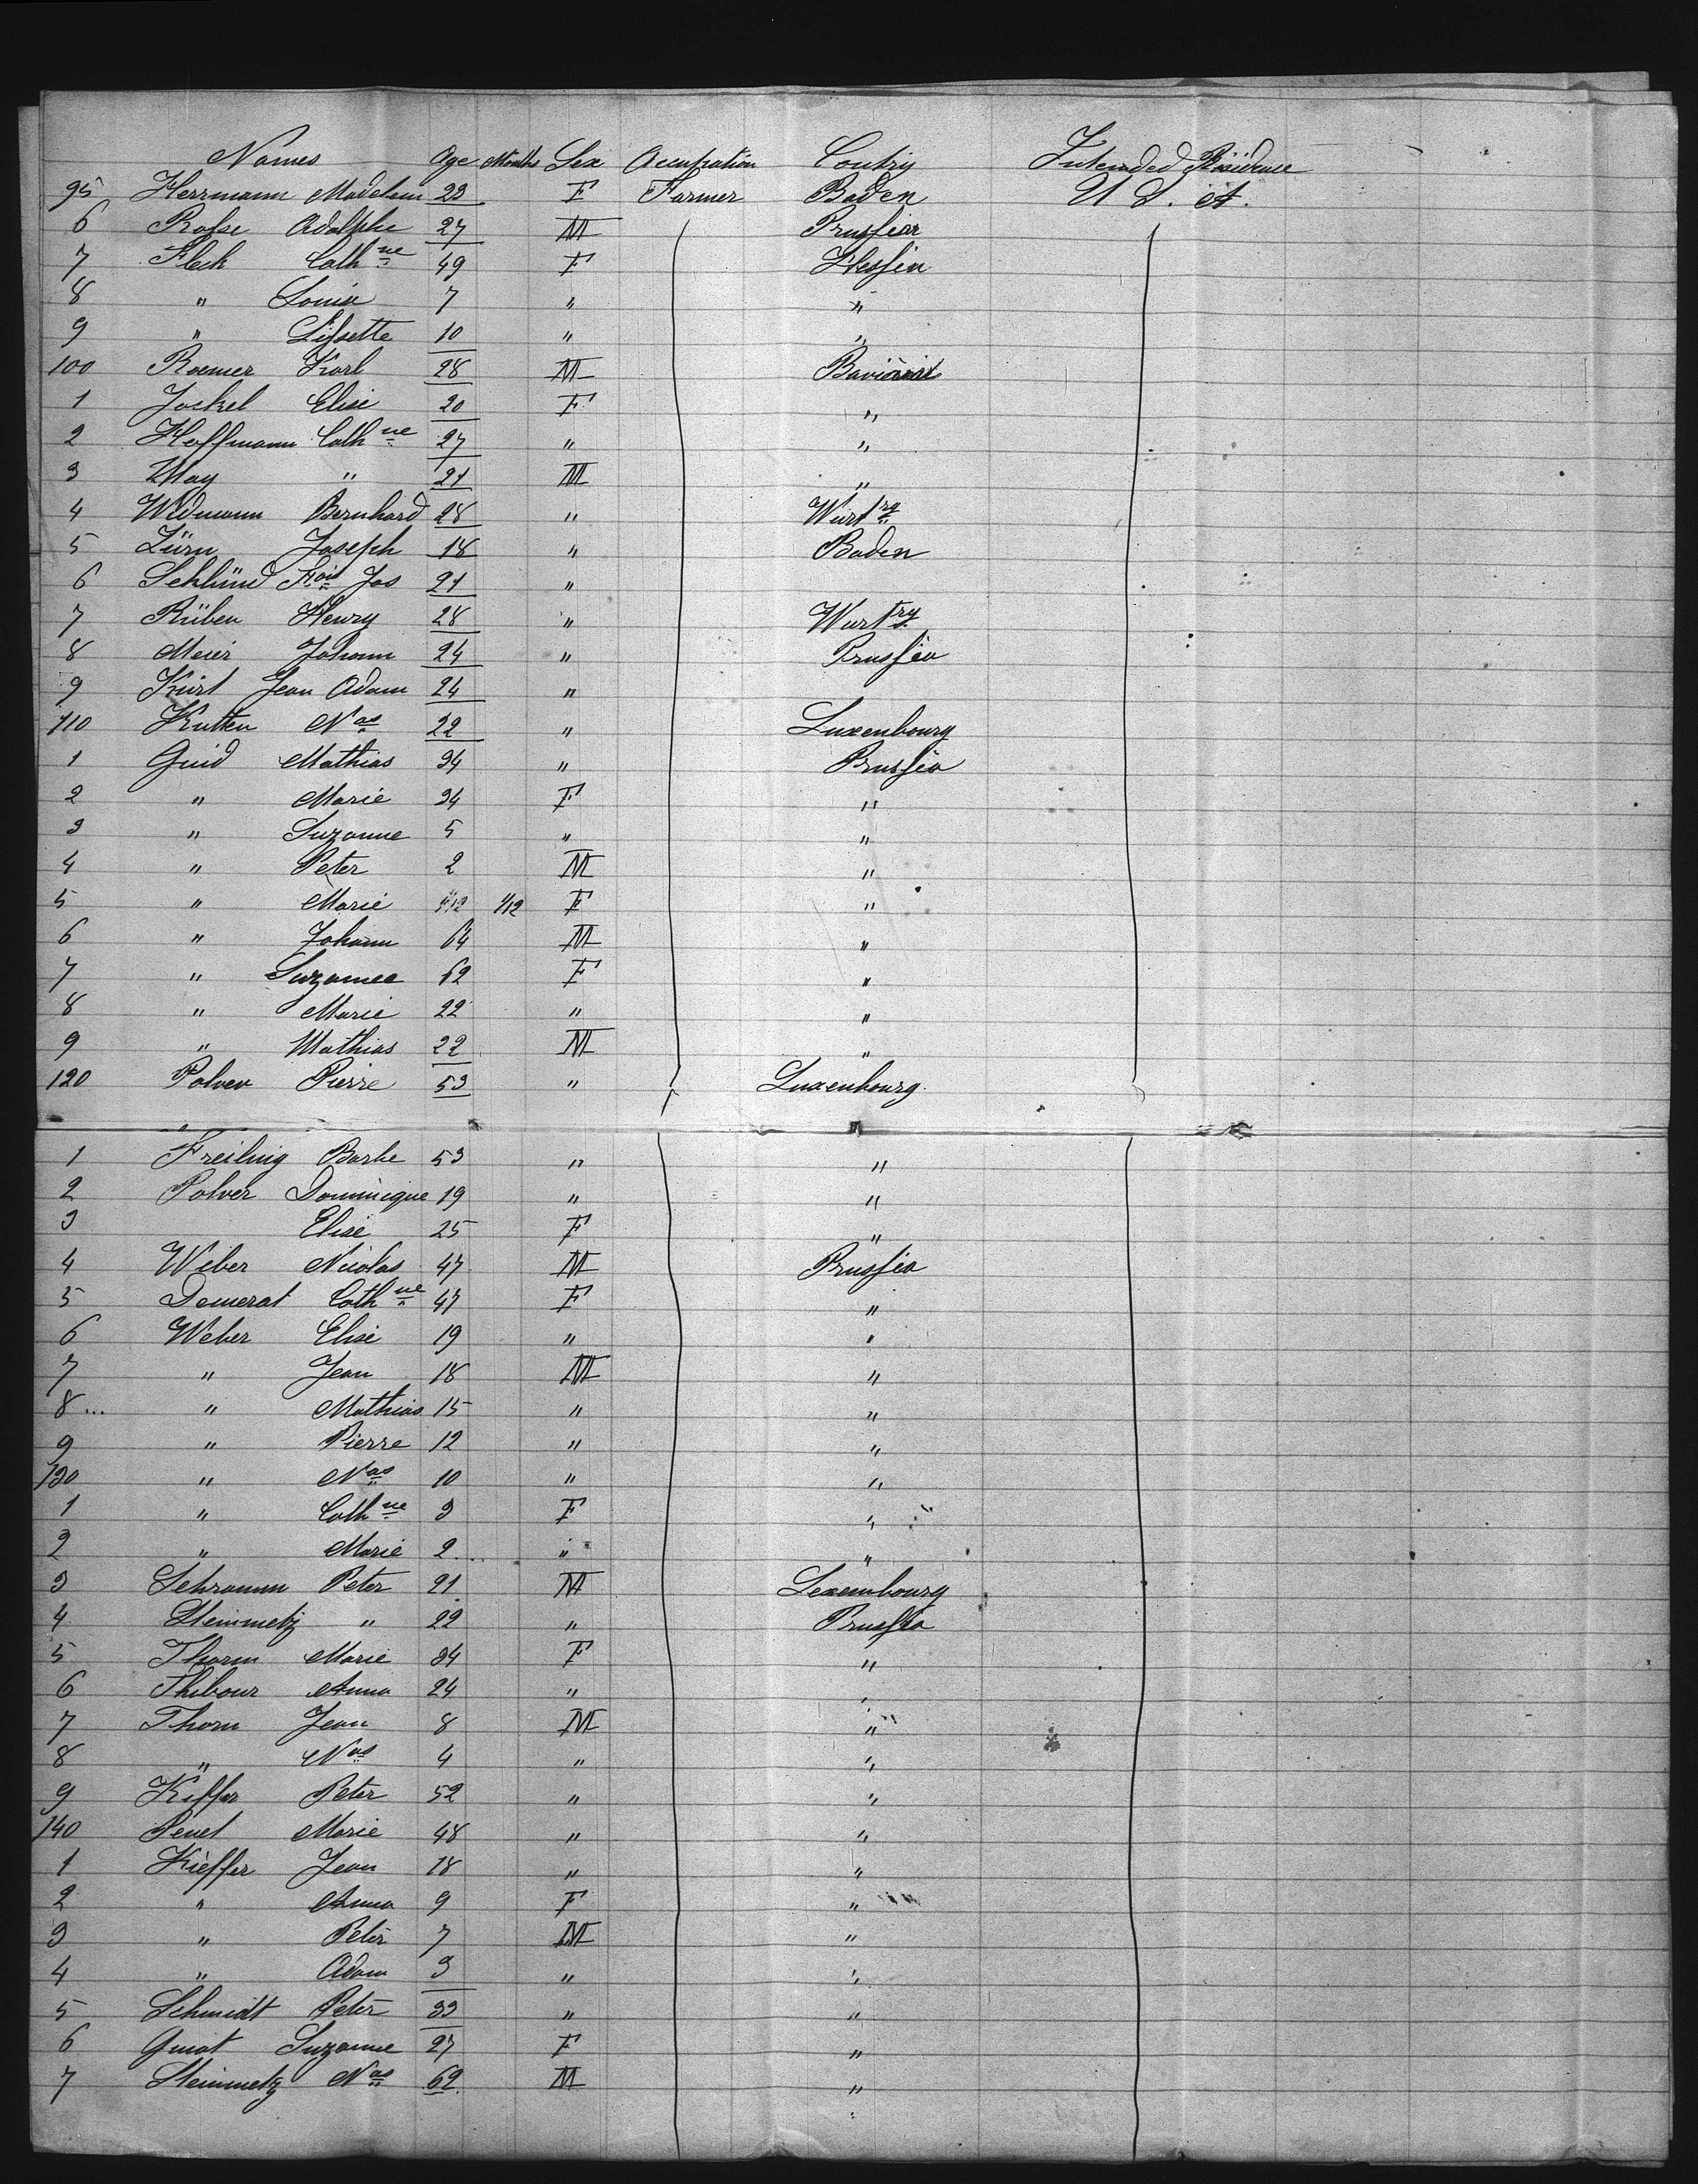 Names Age Months Sex Occupation Contry Intended Résidence
95 Herrmann Madelein 23 F Farmer Baden U S. A.
6 Rosse Adolphe 27 M Prussia
7 Fleck Cathne 49 F Hessen
8 " Louia 7 " "
9 " Lissette 10 " "
100 Roemer Karl 28 M
1 Jockel Elise 20 F "
2 Hoffmann Cathne 27 " "
3 May " 21 M "
4 Widmann Bernhard 28 " Wurtrg
5 Zürn Joseph 18 " Baden
6 Schlünd Fois Jos 21 "
7 Rüben Henry 28 " Wurtrg
8 Meier Johann 24 " Prussia
9 Kürt Jean Adam 24 "
110 Kutten Nas 22 " Luxenbourg
1 Guid Mathias 34 " Prussia
2 " Marie 34 F "
3 " Suzanne 5 " "
4 " Peter 2 M "
5 " Marie 1/12 F "
6 " Johann 64 M "
7 " Suzannee 62 F "
8 " Marie 22 " "
9 " Mathias 22 M "
120 Polver Pierre 53 " Luxenbourg.
1 Freiling Barbe 53 " "
2 Polver Dominique 19 " "
3 Elise 25 F "
4 Weber Nicolas 47 M Prussia
5 Demerat Cathne 47 F "
6 Weber Elise 19 " "
7 " Jean 18 M "
8... " Mathias 15 " "
9 " Pierre 12 " "
130 " Nas 10 " "
1 " Cathne 3 F "
2 " Marie 2 " "
3 Schramm Peter 21 M Lexembourg
4 Steinmetz " 22 " Prussia
5 Thorm Marie 34 F "
6 Thibour Anna 24 " "
7 Thorn Jean 8 M "
8 " Nas 4 " "
9 Kiffer Peter 52 " "
140 Penet Marie 48 " "
1 Kieffer Jean 18 " "
2 " Anna 9 F "
3 " Peter 7 M "
4 " Adam 3 " "
5 Schmidt Peter 33 " "
6 Guiot Suzanne 27 F "
7 Steinmetz Nas 62 M "